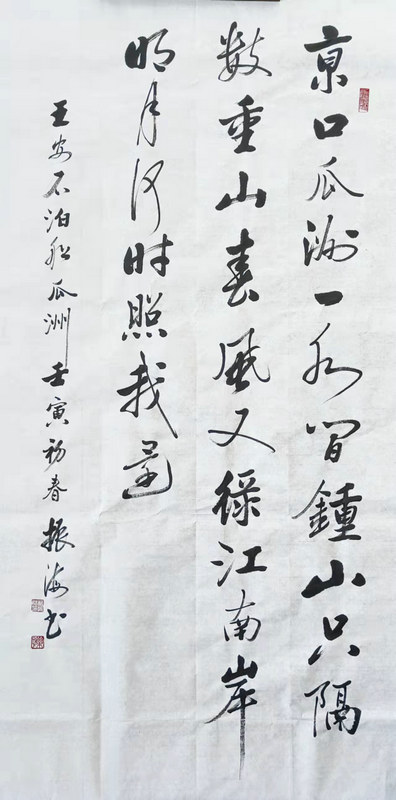 京口瓜洲一水间鍾山只隔
数重山春風又绿江南岸
明月何时照我還
王安石泊船瓜洲壬寅初春振海书